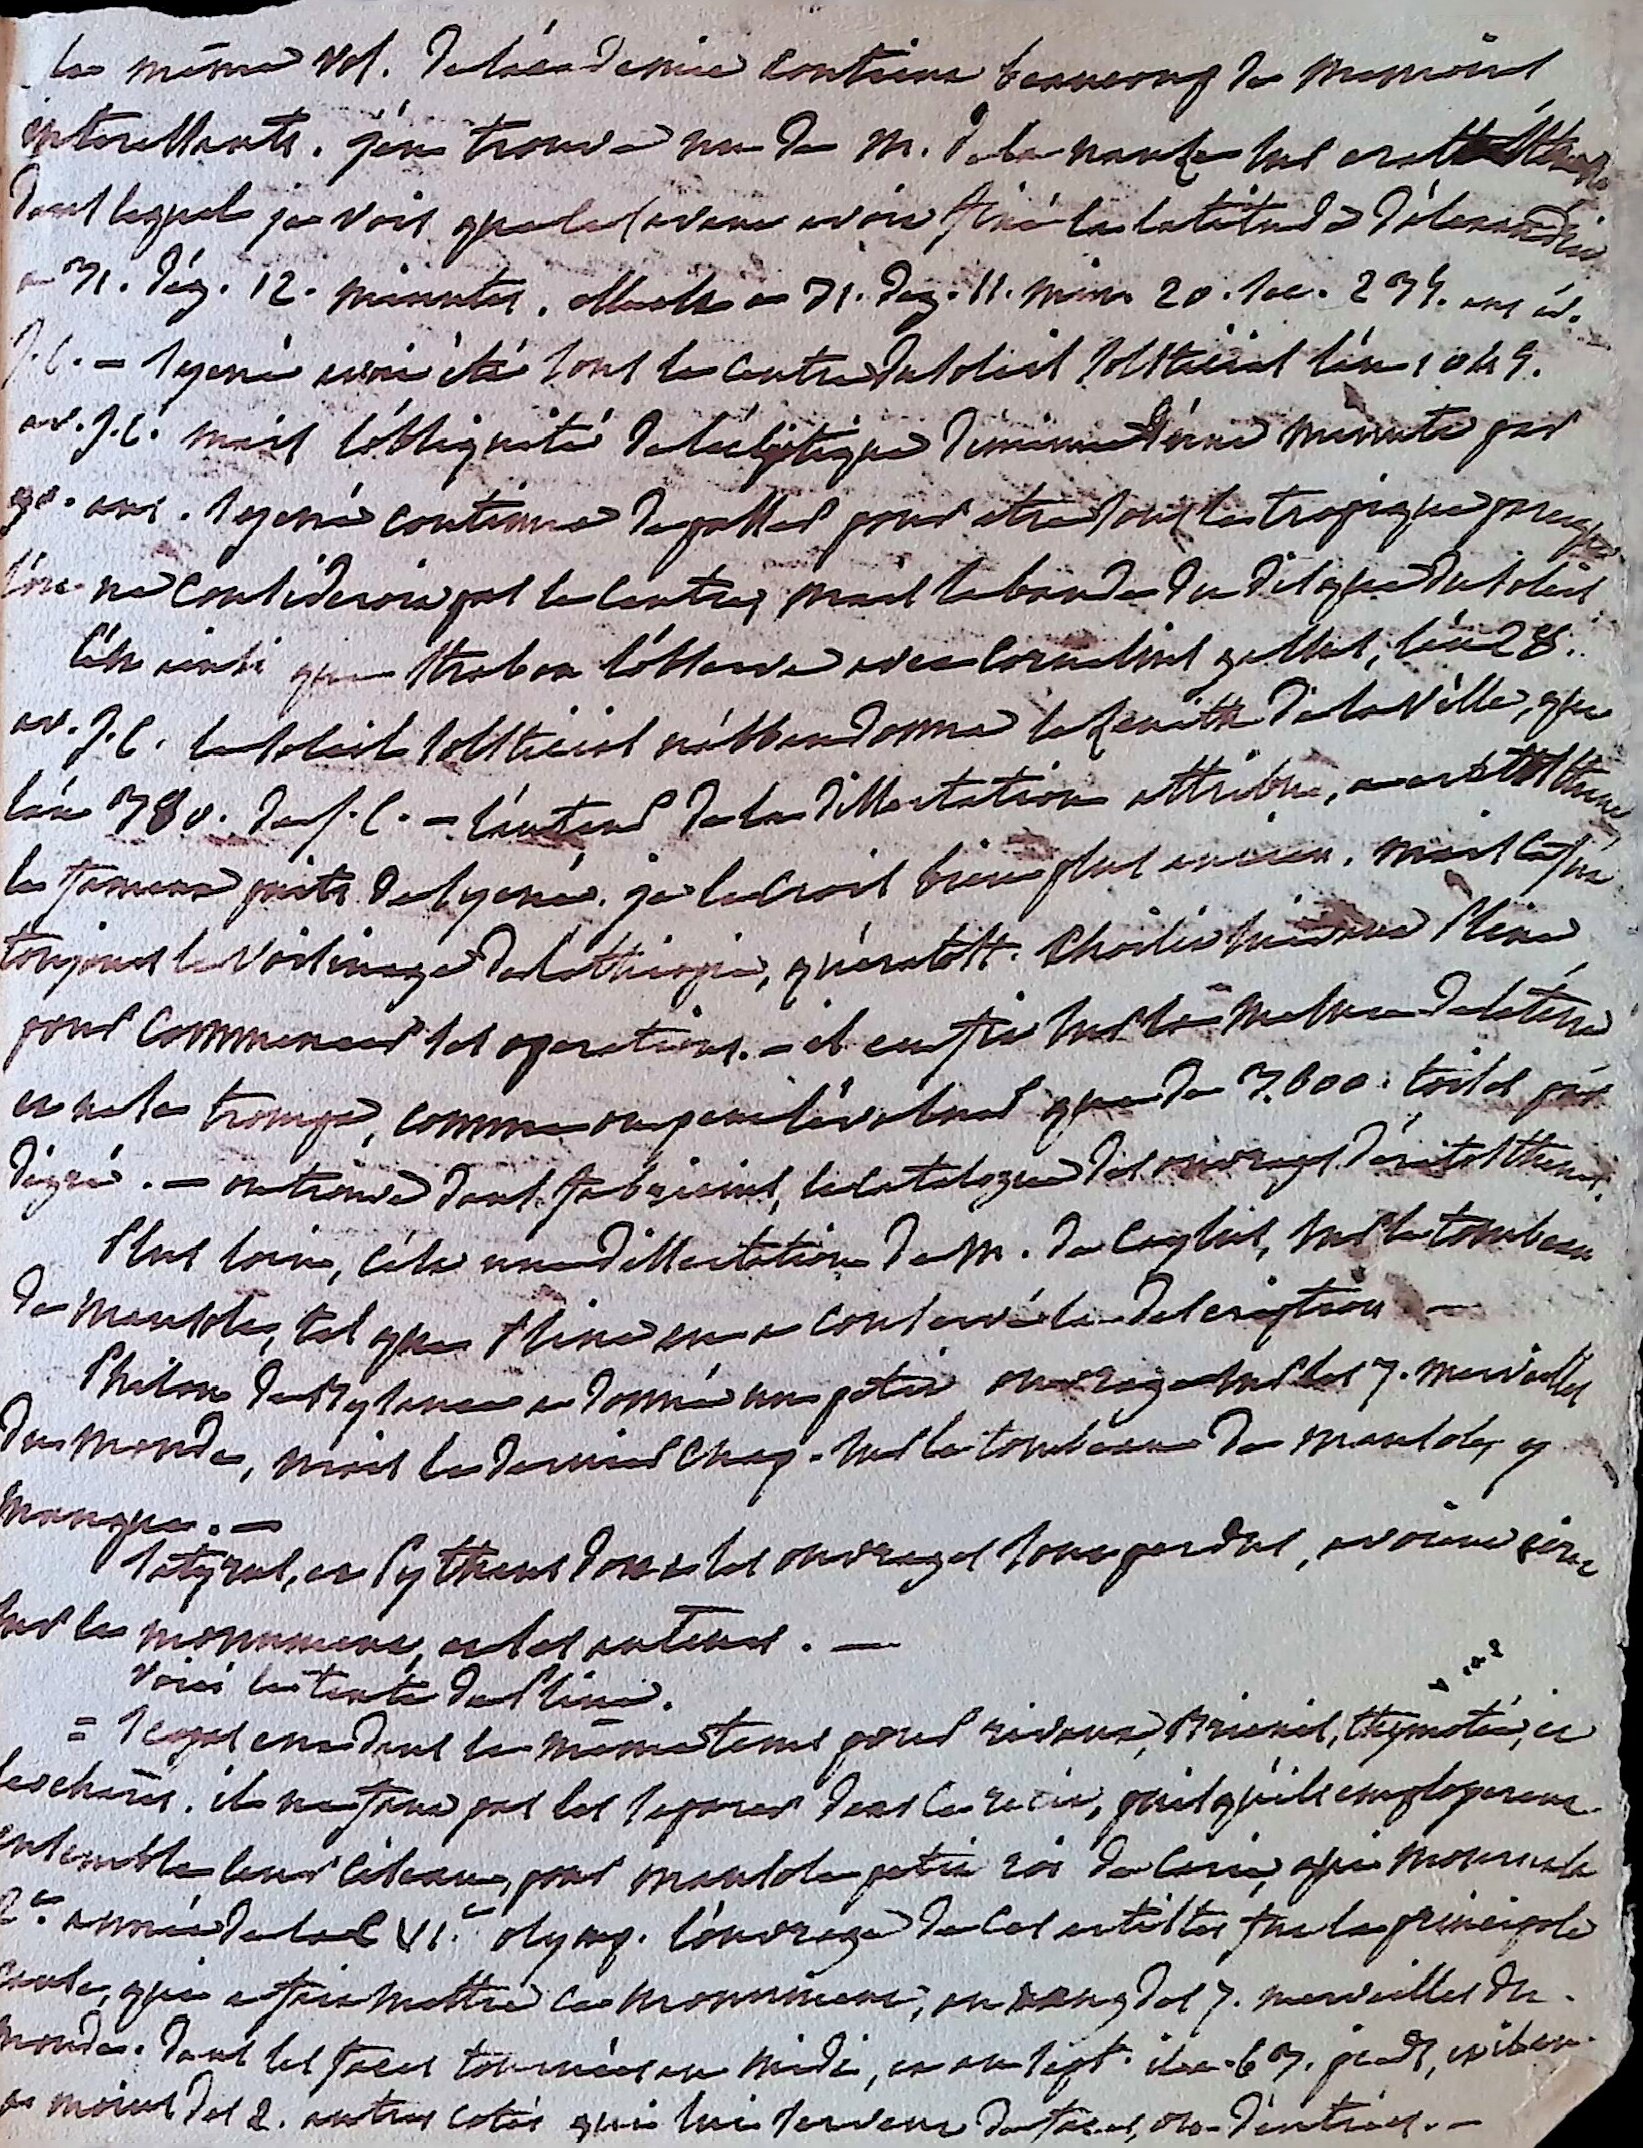 Le même vol. de l'académie contient beaucoup de memoires
interessants. j'en trouve un de M. de la nauze sur eratosthene
dans lequel je vois que ce savant avoit fixé la latitude d'alexandrie
a 31. deg. 12. minutes. elle est a 31. deg. 11. min. 20. sec. 234. ans av.
J.C. = syene avoit été sous le centre du soleil solsticial l'an
av. J.C. mais l'obliquité de l'écliptique diminue d'une minute par
90. ans. syene continua de passer pour etre sous le tropique parceque
l'on ne consideroit pas le centre, mais le bord du disque du soleil
C'est ainsi que strabon l'observa avec Cornelius gallus, l'an 28.
av. J.C. le soleil solsticial n'abbandonna le zenith de la ville, que
l'an 380. de J.C. = l'auteur de la dissertation attribue, a eratosthene,
le fameux puits de syene. je le crois bien plus ancien. mais ce fut
toujours le voisinage de l'ethiopie, qu'eratost. choisit suivant Pline
pour commencer ses operations. = il ecrivit sur la mesure de la terre
et ne se trompa, comme on peut l'évaluer que de 3.600. toises par
dégré. = on trouve dans fabricius, le catalogue des ouvrages d'eratosthene.
Plus loin, c'est une dissertation de M. de Caylus, sur le tombeau
de mausole, tel que Pline en a conservé la description =
Philon de Byzance a donné un petit ouvrage sur les 7. merveilles
du monde, mais le dernier chap. sur le tombeau de mausole, y
manque. =
satyrus, et Pytheus dont les ouvrages sont perdus, avoient écrit
sur le monument, et ses auteurs. —
voici le texte de Pline.
= scopas eut dans le même tems pour rivaux, Briaxis, thymotée, et
leocharès. il ne faut pas les separer dans ce recit, puisqu'ils employerent
ensemble leur ciseau, pour mausole petit roi de Carie, qui mourut la
2e. année de la CVI.e olymp. l'ouvrage de ces artistes fut la principale
cause, qui a fait mettre ce monument, au rang des 7. merveilles du
monde. dans les faces tournées au midi, et au sept. il a 63. pieds, et il en
a moins des 2. autres cotés qui lui servent de faces, ou d'entrées. =